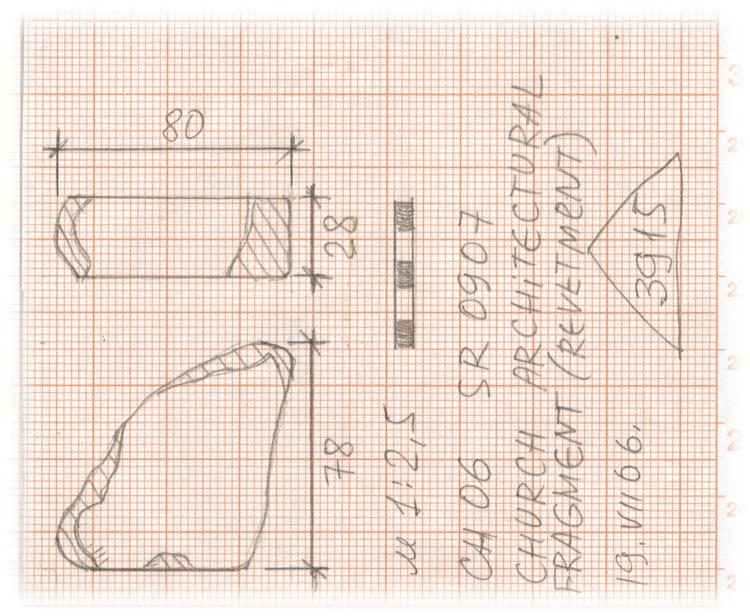 80
28
78
м 1:2,5
CH 06 SR 0907
CHURCH ARCHITECTURAL
FRAGMENT (REVETMENT)
19. VII 06.
3915